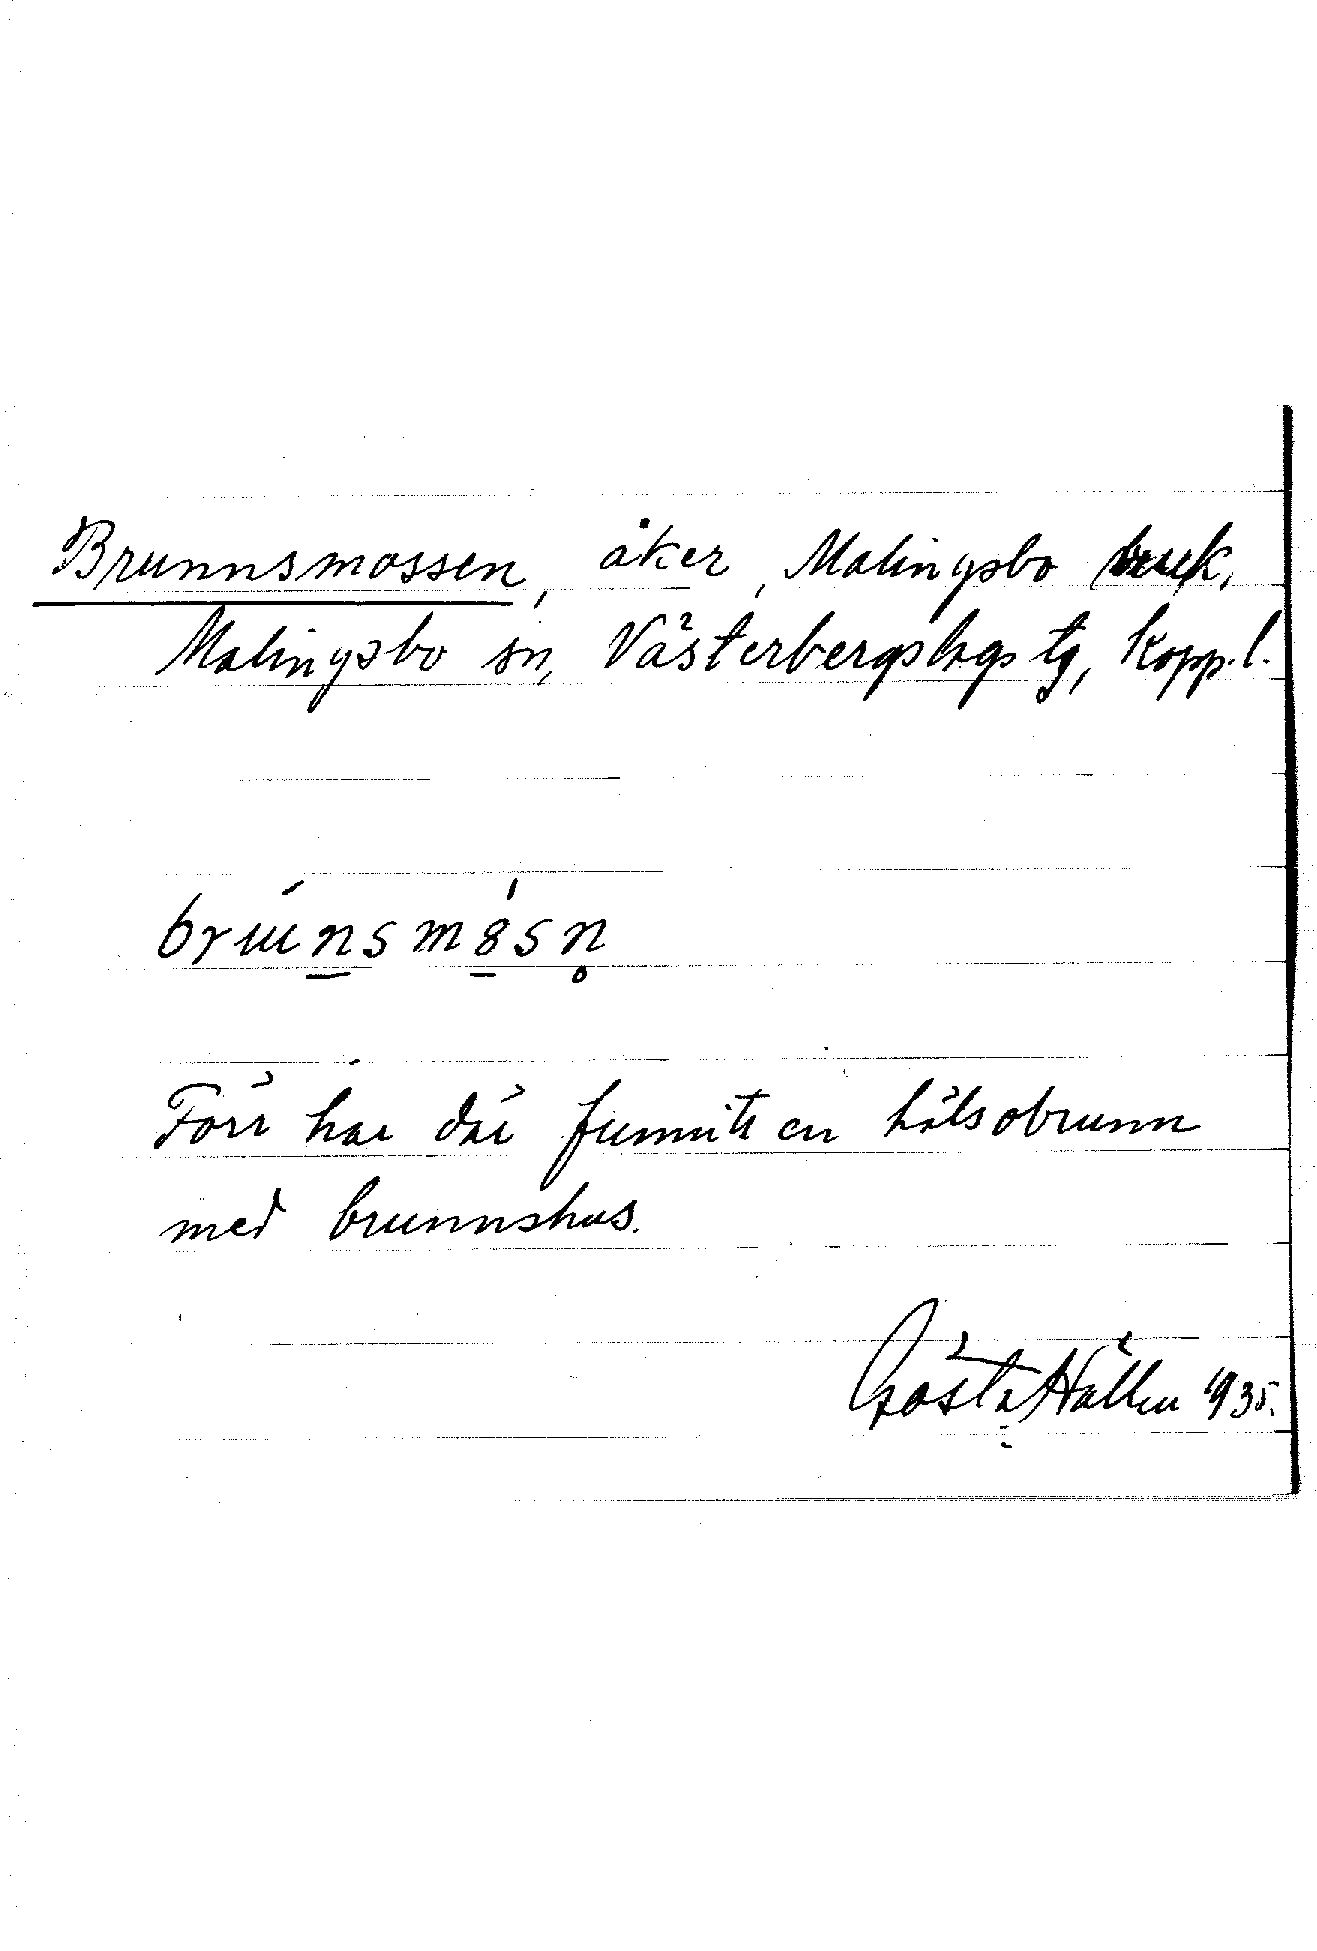 Brunnsmossen, åker, Malingsbo bruk,
Malingsbo sn, Västerbergslags tg, Kopp. l.
Förr har där funnits en hälsobrunn
med brunnshus.
Gösta Hallen 1935.